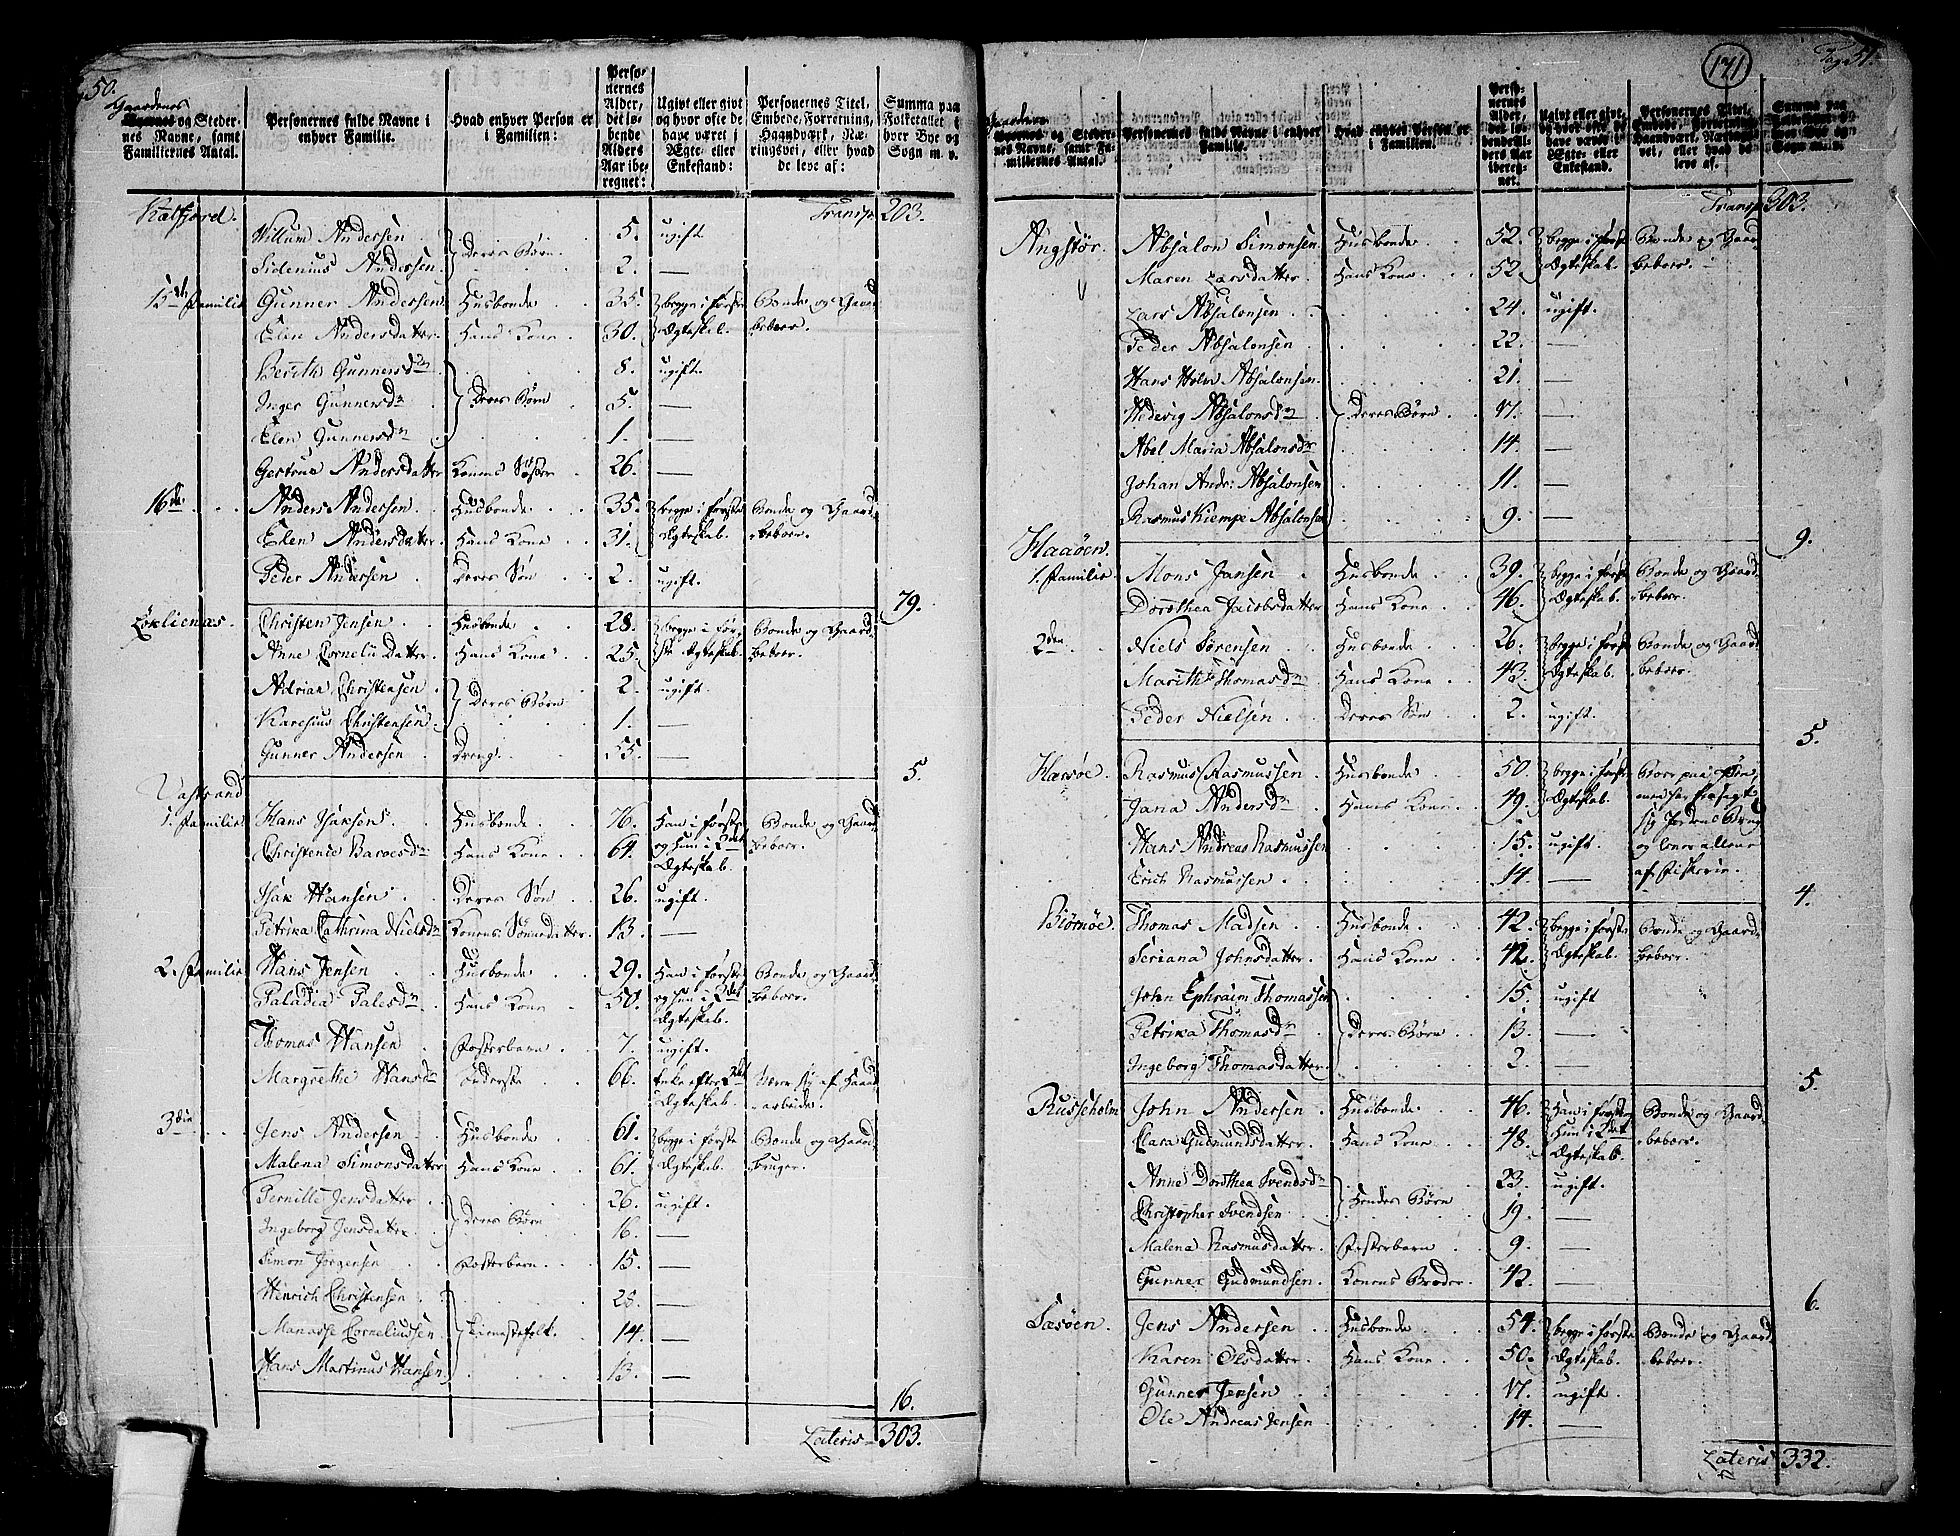 50.
Gaardenes
Byernes og Stedernes Navne, samt Familiernes Antal.
Personernes fulde Navne i enhver Familie.
Hvad enhver Person er i Familien:
Personernes Alder, det løbende Alders Aar iberegnet:
Ugivt eller givt og hvor ofte de have været i Ægte- eller Enkestand:
Personernes Titel, Embede, Forretning, Haandværk, Næringsvei, eller hvad de leve af:
Summa paa Folketallet i hver Bye og Sogn m. v.
Transp. 203.
Katfjord. Willum Andersen 5. ugift.
Sidenius Andersen Deres Børn 2. —
15de Familie Gunner Andersen Husbonde 35. begge i første Bonde og Gaard
Elen Andersdatter Hans Kone 30. Ægteskab. beboer
Berith Gunnersdr 8. ugift.
Inger Gunnersdr Deres Børn 5. —
Elen Gunnersdr 1. —
Gertrud Andersdatter Konens Søster 26. —
16de Anders Andersen Husbonde 35. begge i første Bonde og Gaard
Elen Andersdatter Hans Kone 31. Ægteskab. beboer.
Peder Andersen Deres Søn 2. ugift.
79.
Løklienæs. Christen Jensen Husbonde 28. begge i før- Bonde og Gaard
Anne Cornelii Datter Hans Kone 25. ste Ægteskab. beboer.
Adrian Christensen 2. ugift.
Karesius Christensen Deres Børn 1. —
Gunner Andersen Dreng 55. —
5.
Vastrand
1. Familie Hans Isaksen Husbonde 76. Han i første Bonde og Gaard
Christence Baroesdr Hans Kone 64. og hun i 2det beboer.
Ægteskab.
Isak Hansen Deres Søn 26. ugift.
Petrika Cathrina Nielsdr Konens Sønnedatter. 13. —
2. Familie Hans Jensen Husbonde 29. Han i første Bonde og Gaard
Paladia Palesdr Hans Kone 50. og hun i 2det beboer.
Ægteskab.
Thomas Hansen Fosterbarn 7. ugift.
Margrethe Hansdr 66. Enke efter 2det
Ægteskab. arbeide.
3die Jens Andersen Husbonde 61. begge i første Bonde og Gaard
Malena Simonsdatter Hans Kone 61. Ægteskab. bruger.
Pernille Jensdatter 26. ugift.
Ingeborg Jensdatter Deres Børn 16. —
Simon Jørgensen Fosterbarn 15. —
Henrich Christensen 28. —
Manasse Corneliussen Tienestefolk. 14. —
Hans Martinus Hansen 13. —
16.
Lateris 303.
171
Pag. 51.
Gaardenes
Byernes og Stedernes Navne, samt Familiernes Antal.
Personernes fulde Navne i enhver Familie.
Hvad enhver Person er i Familien.
Personernes Alder, det løbende Alders Aar iberegnet.
Ugivt eller givt, og hvor ofte de have været i Ægte- eller Enkestand.
Personernes Titel, Embede, Forretning, Haandværk, Næringsvei, eller hvad de leve af.
Summa paa Folketallet i hver Bye og Sogn m. v.
Transp. 303.
Angstør. Absalon Simonsen Husbonde 52. begge i første Bonde og Gaard
Maren Larsdatter Hans Kone 52. Ægteskab. beboer.
Lars Absalonsen 24. ugift.
Peder Absalonsen 22. —
Hans Holm Absalonsen 21. —
Hedevig Absalonsdr Deres Børn 17. —
Abel Maria Absalonsdr 14. —
Johan Andr: Absalonsen 11. —
Rasmus Kiempe Absalonsen 9. —
9.
Haaøen.
1. Familie Mons Jansen Husbonde 39. begge i første Bonde og Gaard
Dorothea Jacobsdatter Hans Kone 46. Ægteskab. beboer.
2den Niels Sørensen Husbonde 26. begge i første Bonde og Gaard
Marith Thomasdr Hans Kone 43. Ægteskab. beboer.
Peder Nielsen Deres Søn 2. ugift.
5.
Harsøe. Rasmus Rasmussen Husbonde 50. begge i første Boer paa Øen,
Jana Andersdr Hans Kone 49. Ægteskab. men har frasagt
sig Jordens Brug
Hans Andreas Rasmussen 15. ugift. og lever allene
Erich Rasmussen 14. — af Fiskerie.
4.
Biørnøe. Thomas Madsen Husbonde 42. begge i første Bonde og Gaard
Seriana Johnsdatter Hans Kone 42. Ægteskab. beboer.
John Ephraim Thomassen 15. ugift
Petrika Thomasdr Deres Børn 13. —
Ingeborg Thomasdatter 2. —
5.
Russeholm John Andersen Husbonde 46. Han i første Bonde og Gaard
Clara Gudmundsdatter Hans Kone 48. Hun i 2det beboer.
Ægteskab.
Anne Dorothea Svendsdr 23. ugift.
Christopher Svendsen Hendes Børn 19. —
Malena Rasmusdatter Fosterbarn 9. —
Gunner Gudmundsen Konens Broder 42. —
6.
Sasøen. Jens Andersen Husbonde 54. begge i første Bonde og Gaard
Karen Olsdatter Hans Kone 50. Ægteskab. beboer.
Gunner Jensen 17. ugift.
Ole Andreas Jensen 14. —
Lateris 332.